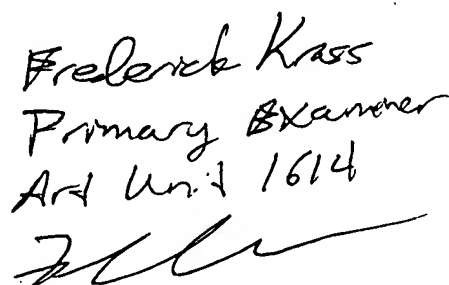 Frederick Krass
Primary Examiner
Art Unit 1614